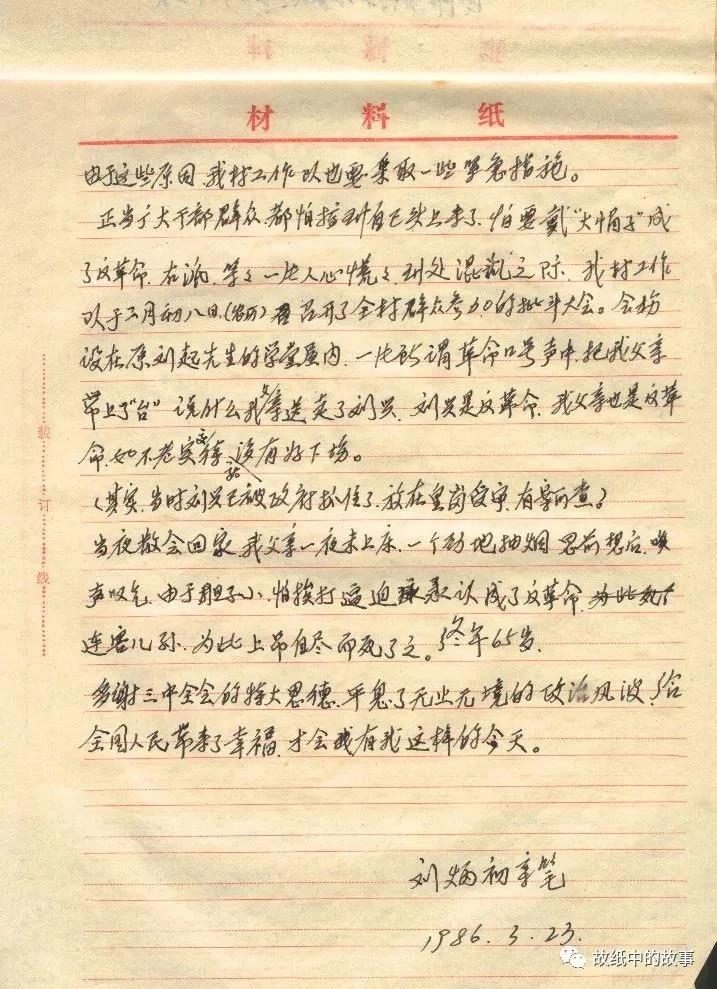 材料纸
由于这些原因,我村工作队也要采取一些紧急措施。
正当广大干部群众都怕搞到自已头上来了,怕要戴“大帽子”成
了反革命,右派,等々一片人心慌々,到处混乱之际,我村工作
队于二月初八日(农历)召开了全村群众参加的批斗大会。会场
设在原刘起先生的学堂屋内,一片所谓革命口号声中,把我父亲
带上了“台”说什么我父亲送走了刘兴,刘兴是反革命,我父亲也是反革
命,如不老实交待,没有好下场。
(其实,当时刘兴已被政府抓住了,放在里岗受审,有案可查)
当夜散会回家,我父亲一夜未上床,一个劲地抽烟思前想后,唉
声叹气,由于胆子小,怕挨打逼迫承认成了反革命,
连害儿孙,为此上吊自尽而死了之。终年65岁。
多谢三中全会的特大恩德,平息了无业无境的政治风波,给
全国人民带来了幸福,才会我有我这样的今天。
刘炳初亲笔
1986.3.23.
装
订
线
故纸中的故事